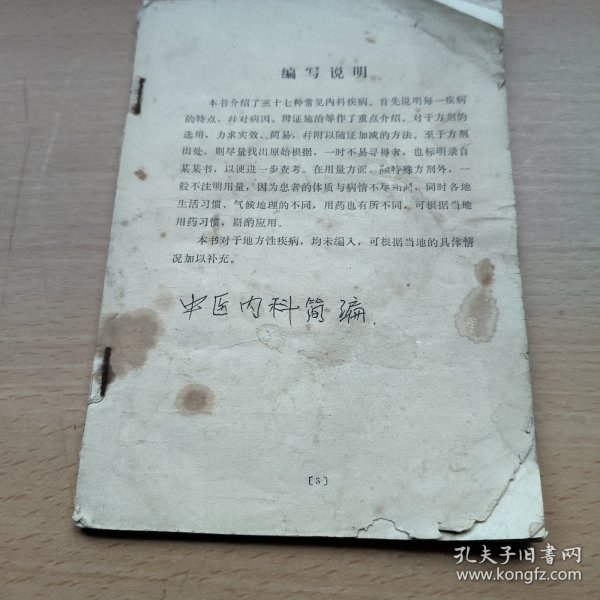 编写说明
本书介绍了三十七种常见内科疾病。首先说明每一疾病
的特点，并对病因、辩证施治等作了重点介绍。对于方剂的
选用，力求实效、简易，并附以随证加减的方法。至于方剂
出处，则尽量找出原始根据，一时不易寻得者，也标明录自
某某书，以便进一步查考。在用量方面，除特殊方剂外，一
般不注明用量，因为患者的体质与病情不尽相同，同时各地
生活习惯、气候地理的不同，用药也有所不同，可根据当地
用药习惯，斟酌应用。
本书对于地方性疾病，均未编入，可根据当地的具体情
况加以补充。
中医内科简编.
〔3〕
孔夫子旧书网
www.kongfz.com